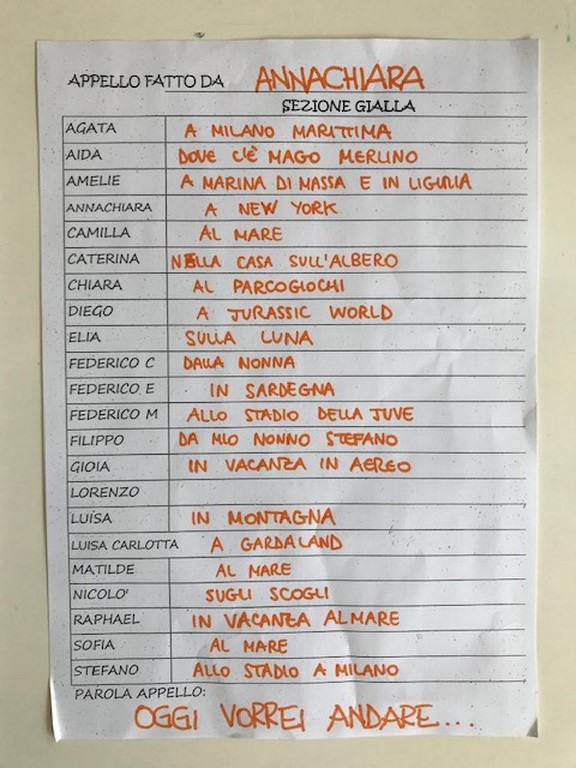 APPELLO FATTO DA ANNACHIARA
SEZIONE GIALLA
AGATA A MILANO MARITTIMA
AIDA DOVE C'È MAGO MERLINO
AMELIE A MARINA DI MASSA E IN LIGURIA
ANNACHIARA A NEW YORK
CAMILLA AL MARE
CATERINA NELLA CASA SULL'ALBERO
CHIARA AL PARCOGIOCHI
DIEGO A JURASSIC WORLD
ELIA SULLA LUNA
FEDERICO C DALLA NONNA
FEDERICO E IN SARDEGNA
FEDERICO M ALLO STADIO DELLA JUVE
FILIPPO DA MIO NONNO STEFANO
GIOIA IN VACANZA IN AEREO
LORENZO
LUISA IN MONTAGNA
LUISA CARLOTTA A GARDALAND
MATILDE AL MARE
NICOLO' SUGLI SCOGLI
RAPHAEL IN VACANZA AL MARE
SOFIA AL MARE
STEFANO ALLO STADIO A MILANO
PAROLA APPELLO:
OGGI VORREI ANDARE...